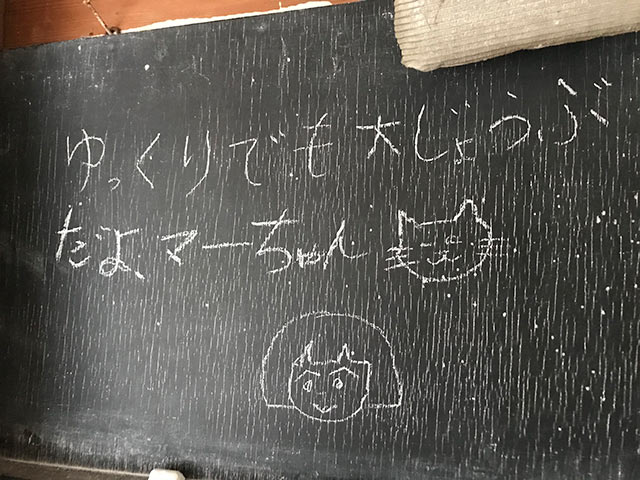 ゆっくりでも大じょうぶ
だよ、マーちゃん